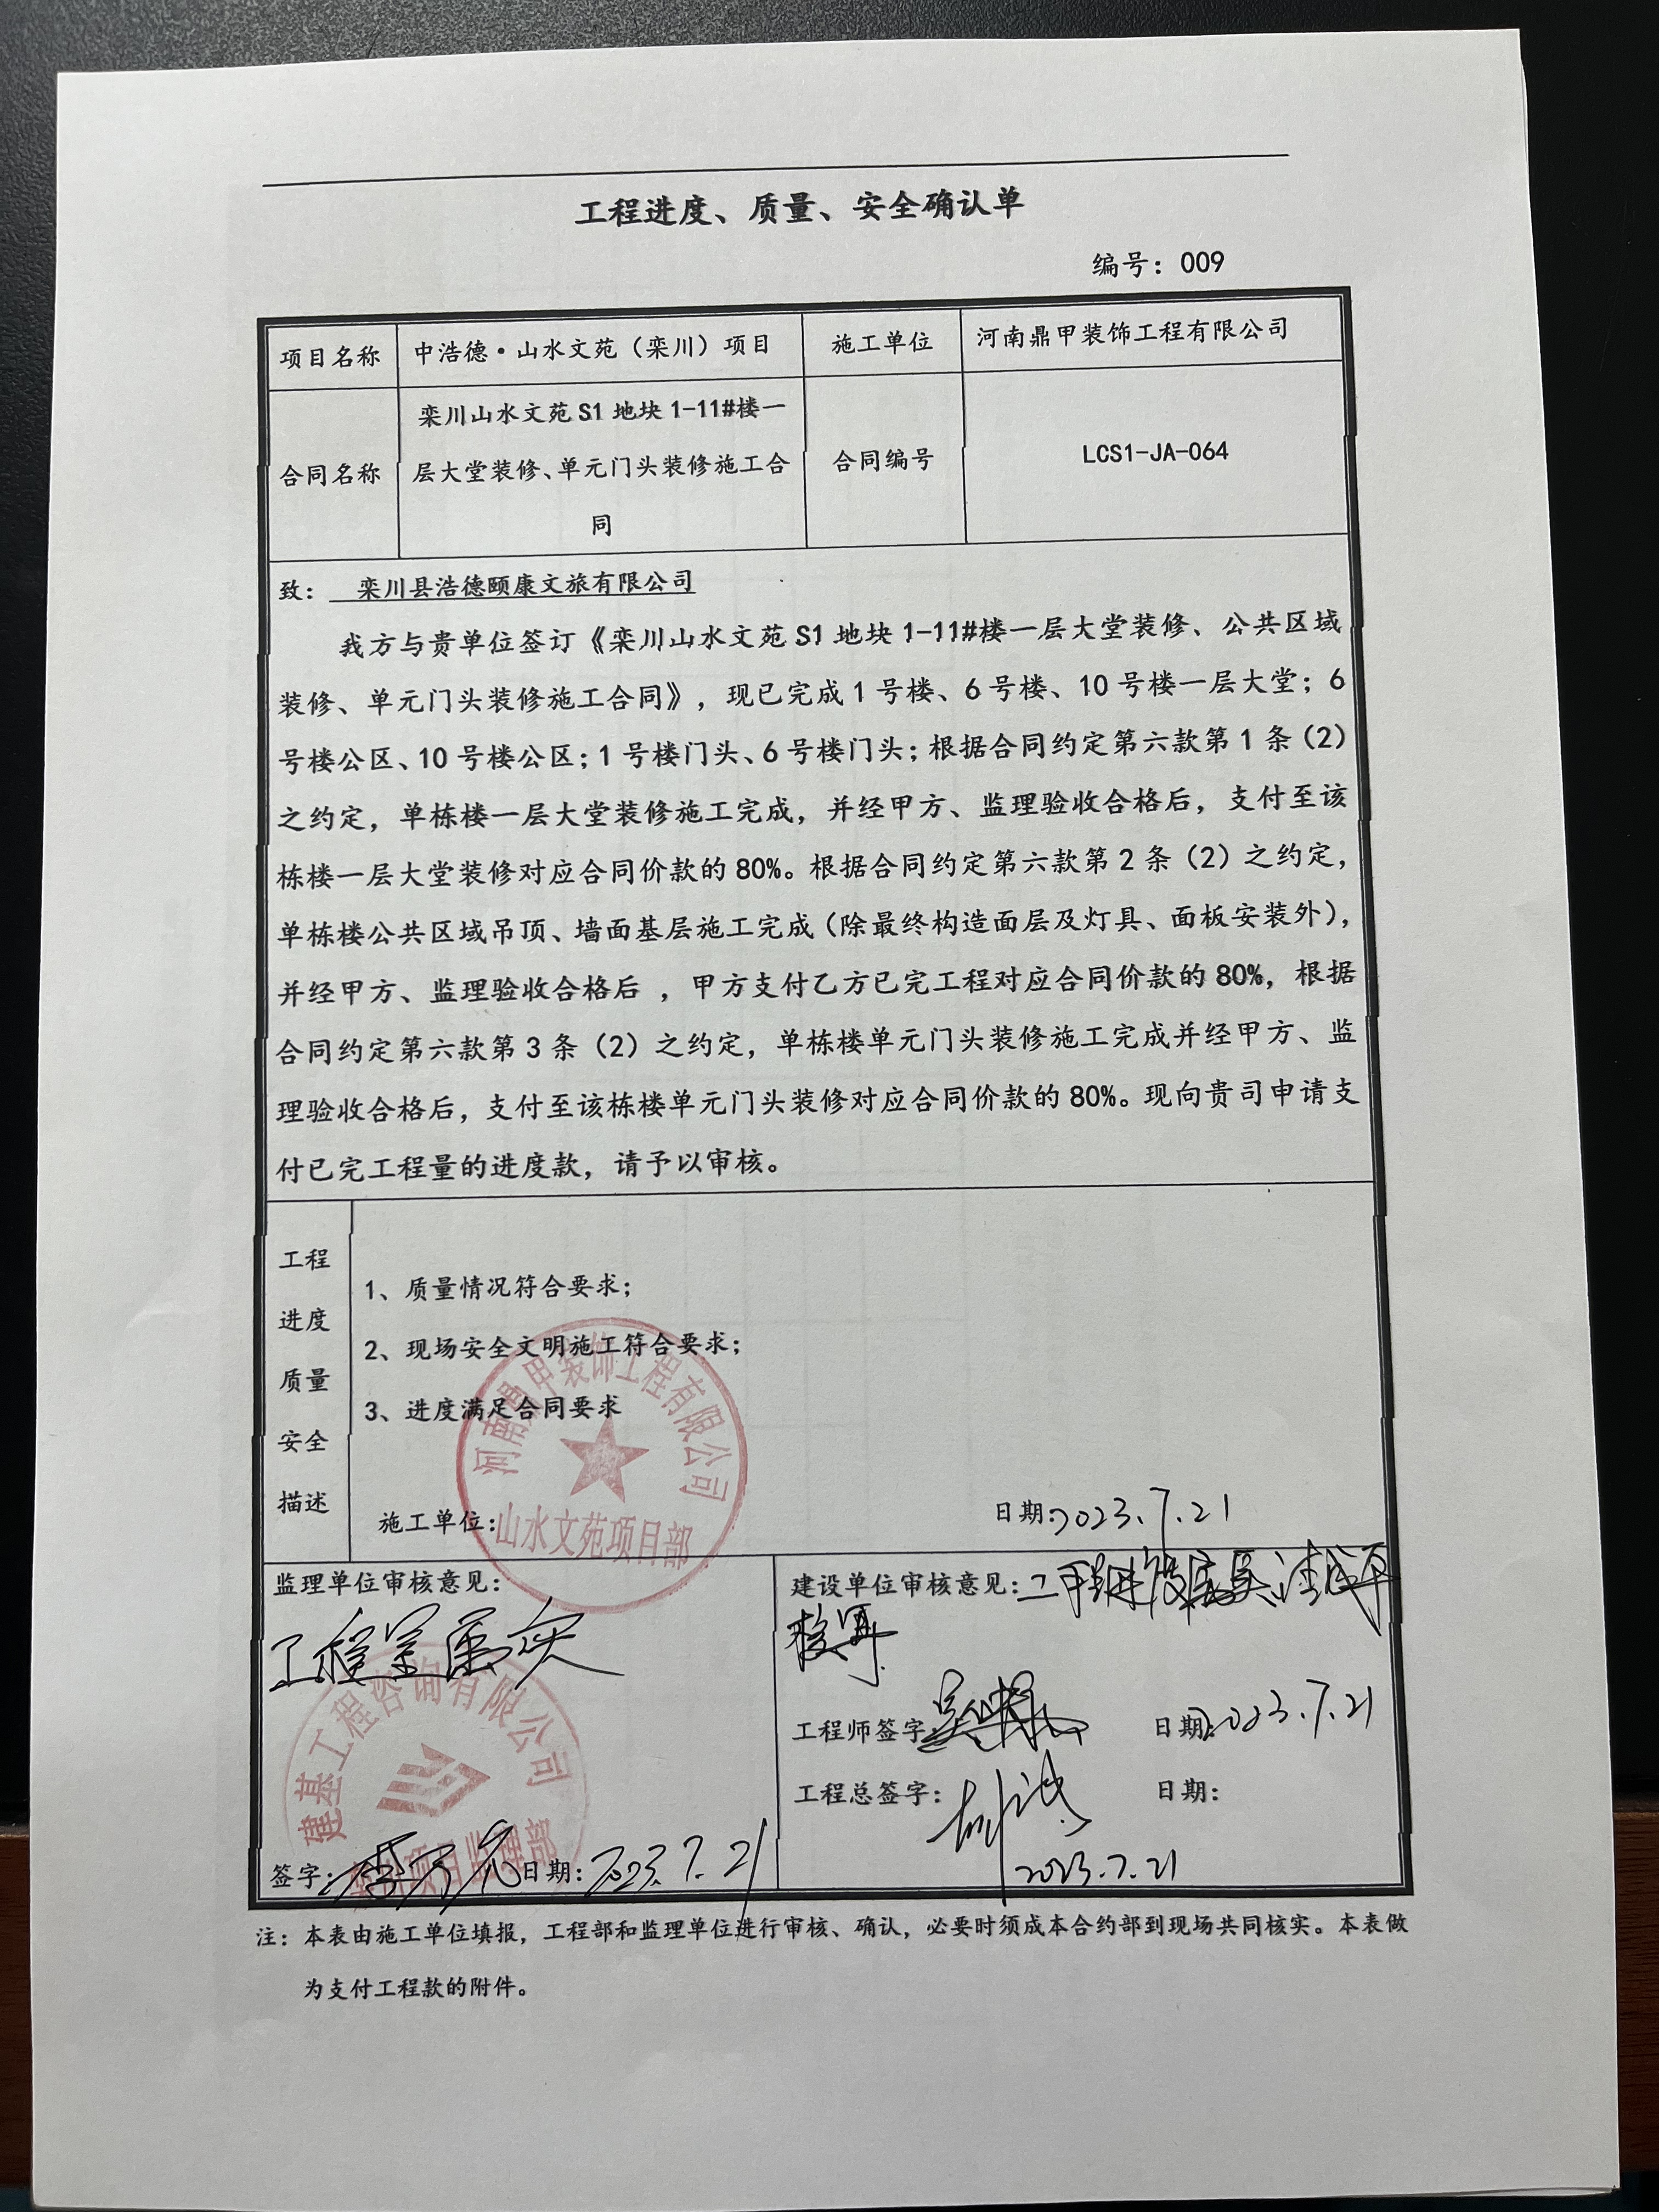 工程进度、质量、安全确认单
编号：009
项目名称
中浩德·山水文苑（栾川）项目
施工单位
河南鼎甲装饰工程有限公司
合同名称
栾川山水文苑S1地块1-11#楼一
层大堂装修、单元门头装修施工合
同
合同编号
LCS1-JA-064
致：栾川县浩德颐康文旅有限公司
我方与贵单位签订《栾川山水文苑S1地块1-11#楼一层大堂装修、公共区域
装修、单元门头装修施工合同》，现已完成1号楼、6号楼、10号楼一层大堂；6
号楼公区、10号楼公区；1号楼门头、6号楼门头；根据合同约定第六款第1条（2）
之约定，单栋楼一层大堂装修施工完成，并经甲方、监理验收合格后，支付至该
栋楼一层大堂装修对应合同价款的80%。根据合同约定第六款第2条（2）之约定，
单栋楼公共区域吊顶、墙面基层施工完成（除最终构造面层及灯具、面板安装外），
并经甲方、监理验收合格后，甲方支付乙方已完工程对应合同价款的80%，根据
合同约定第六款第3条（2）之约定，单栋楼单元门头装修施工完成并经甲方、监
理验收合格后，支付至该栋楼单元门头装修对应合同价款的80%。现向贵司申请支
付已完工程量的进度款，请予以审核。
工程
进度
质量
安全
描述
1、质量情况符合要求；
2、现场安全文明施工符合要求；
3、进度满足合同要求
河南鼎甲装饰工程有限公司
山水文苑项目部
施工单位：
日期：2023.7.21
监理单位审核意见：
工程量属实
建基工程咨询有限公司
项目监理部
签字：
日期：2023.7.21
建设单位审核意见：
工程师签字：
日期：2023.7.21
工程总签字：
日期：
2023.7.21
注：本表由施工单位填报，工程部和监理单位进行审核、确认，必要时须成本合约部到现场共同核实。本表做
为支付工程款的附件。